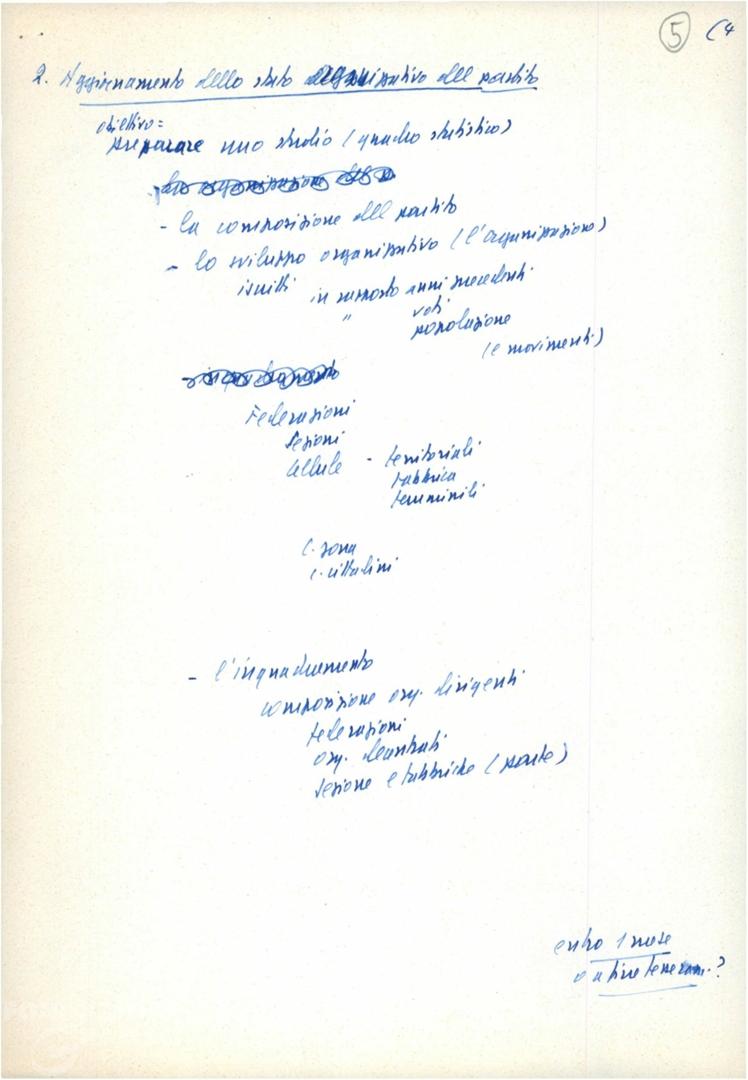 5 (4
2. Aggiornamento dello stato organizzativo del partito
obiettivo =
preparare uno studio (quadro statistico)
- la composizione del partito
- lo sviluppo organizzativo (l'organizzazione)
iscritti in rapporto anni precedenti
" voti
popolazione
(e movimenti)
Federazioni
Sezioni
Cellule - territoriali
fabbrica
femminili
C. zona
C. cittadini
- l'inquadramento
composizione org. dirigenti
federazioni
org. decentrati
sezione e fabbriche (parte)
entro 1 mese
o a fine tesseram.?